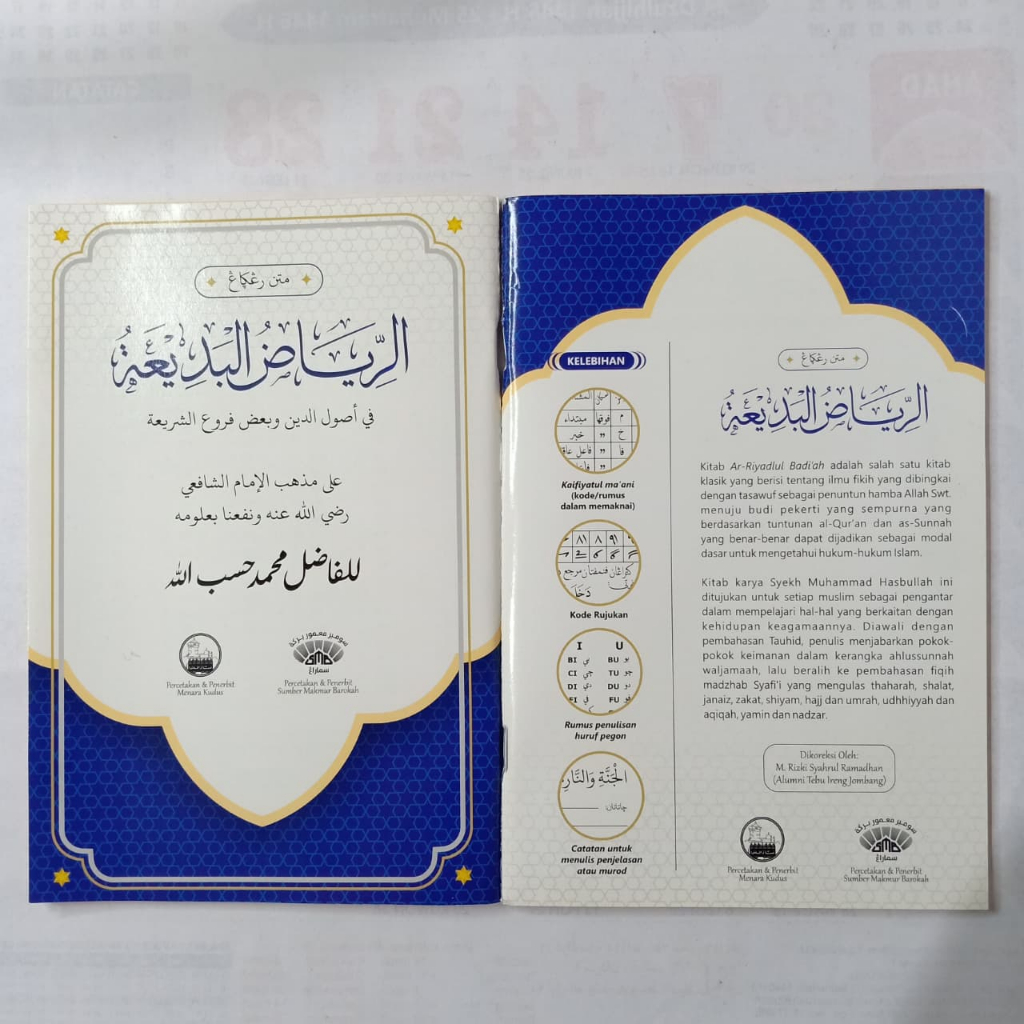 متن رڠكاڠ
الرِّيَاضُ الْبَدِيْعَةُ
في أصول الدين وبعض فروع الشريعة
على مذهب الإمام الشافعي
رضي الله عنه ونفعنا بعلومه
للفاضل محمد حسب الله
Percetakan & Penerbit
Menara Kudus
سومبر معمور بركة
SMB
سماراڠ
Percetakan & Penerbit
Sumber Makmur Barokah
KELEBIHAN
م فوقها مبتداء
خ " خبر
فا " فاعل عاقل
Kaifiyatul ma'ani
(kode/rumus
dalam memaknai)
دَخَلَ
Kode Rujukan
I U
BI بي BU بو
CI چي TU چو
DI دي DU دو
FI في FU فو
Rumus penulisan
huruf pegon
الْجَنَّةِ وَالنَّارِ
چاتاتان:
Catatan untuk
menulis penjelasan
atau murod
متن رڠكاڠ
الرِّيَاضُ الْبَدِيْعَةُ
Kitab Ar-Riyadlul Badi'ah adalah salah satu kitab
klasik yang berisi tentang ilmu fikih yang dibingkai
dengan tasawuf sebagai penuntun hamba Allah Swt.
menuju budi pekerti yang sempurna yang
berdasarkan tuntunan al-Qur'an dan as-Sunnah
yang benar-benar dapat dijadikan sebagai modal
dasar untuk mengetahui hukum-hukum Islam.
Kitab karya Syekh Muhammad Hasbullah ini
ditujukan untuk setiap muslim sebagai pengantar
dalam mempelajari hal-hal yang berkaitan dengan
kehidupan keagamaannya. Diawali dengan
pembahasan Tauhid, penulis menjabarkan pokok-
pokok keimanan dalam kerangka ahlussunnah
waljamaah, lalu beralih ke pembahasan fiqih
madzhab Syafi'i yang mengulas thaharah, shalat,
janaiz, zakat, shiyam, hajj dan umrah, udhhiyyah dan
aqiqah, yamin dan nadzar.
Dikoreksi Oleh:
M. Rizki Syahrul Ramadhan
(Alumni Tebu Ireng Jombang)
Percetakan & Penerbit
Menara Kudus
سومبر معمور بركة
SMB
سماراڠ
Percetakan & Penerbit
Sumber Makmur Barokah